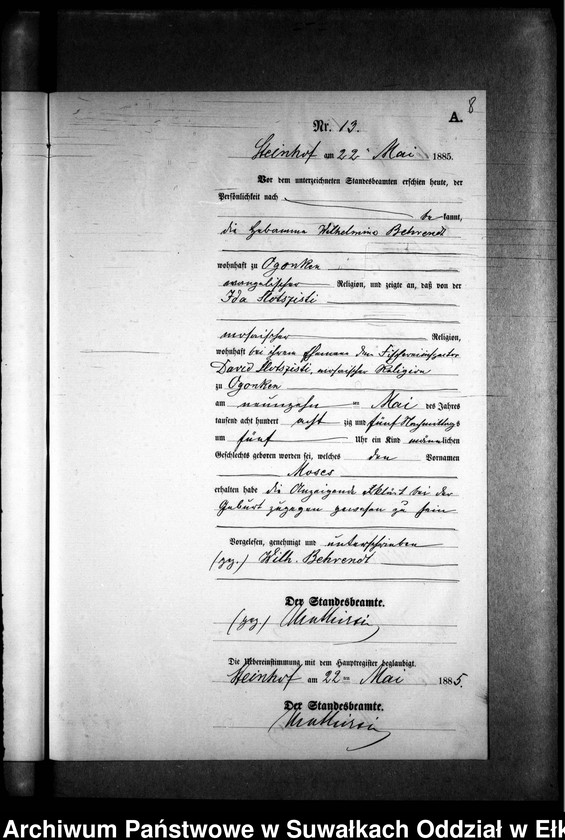 8
A.
Nr. 13.
Steinhof am 22 Mai 1885.
Vor dem unterzeichneten Standesbeamten erschien heute, der
Persönlichkeit nach
be kannt,
die Hebamme Wilhelmine Behrendt
wohnhaft zu Ogonken
evangelischer Religion, und zeigte an, daß von der
Ida
mosaischer Religion,
wohnhaft bei ihrem Ehemann dem
David mosaischer Religion
zu Ogonken
am neunzehn ten Mai des Jahres
tausend acht hundert acht zig und fünf Nachmittags
um fünf Uhr ein Kind männlichen
Geschlechts geboren worden sei, welches den Vornamen
Moses
erhalten habe die Anzeigende erklärt bei der
Geburt zugegen gewesen zu sein
Vorgelesen, genehmigt und unterschrieben
(gez.) Wilh. Behrendt
Der Standesbeamte.
(gez)
Die Uebereinstimmung mit dem Hauptregister beglaubigt.
Steinhof am 22 ten Mai 1885.
Der Standesbeamte.
Archiwum Państwowe w Suwałkach Oddział w Ełk